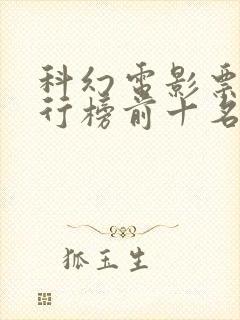 科幻电影票
行榜前十名
狐玉生